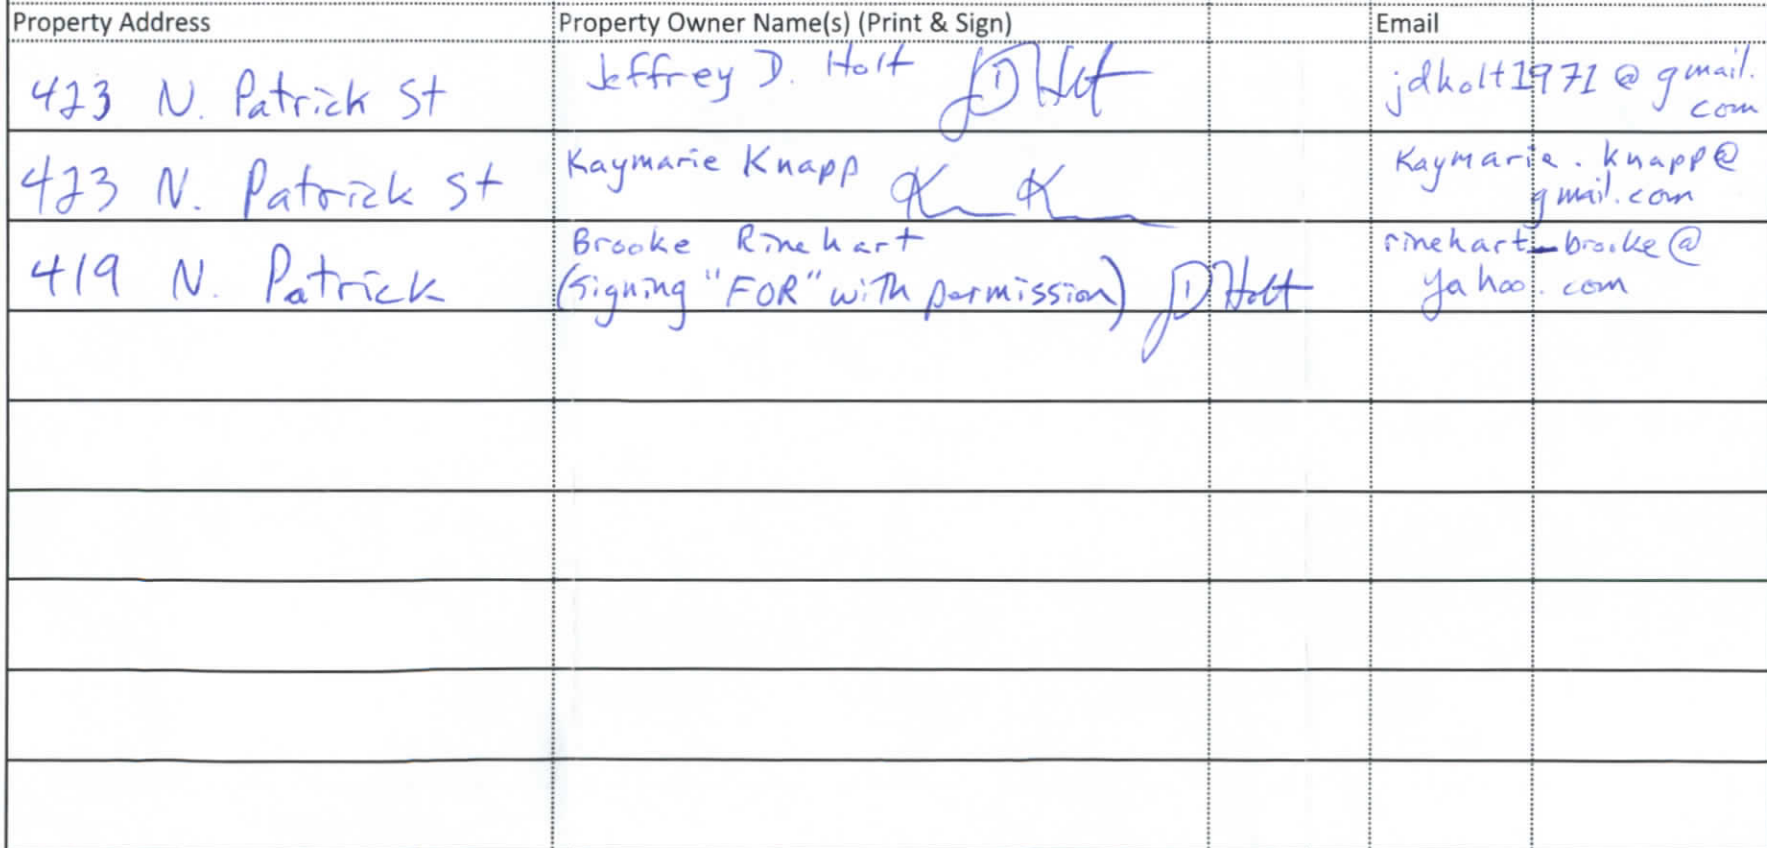 Property Address Property Owner Name(s) (Print & Sign) Email
423 N. Patrick St Jeffrey D. Holt JD Holt jdholt1971@gmail.
com
423 N. Patrick St Kaymarie Knapp K K Kaymarie.knapp@
gmail.com
419 N. Patrick Brooke Rinehart rinehart_brooke@
(signing "FOR" with permission) JD Holt yahoo.com